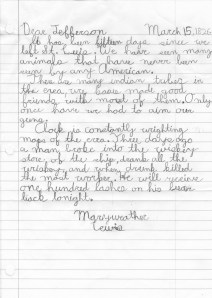 Dear Jefferson March 15, 1806
It has been fifteen days since we
left St. Louis. We have seen many
animals that have never been
seen by any American.
There is many indian tribes in
the area, we have made good
friends with most of them. Only
once have we had to aim our
guns.
Clark is constantly
maps of the area. Three days ago
a man broke into the
store, of the ship, drank all the
and when drunk killed
the most. He will recieve
one hundred lashes on his bare
back tonight.
Maryweather
Lewis